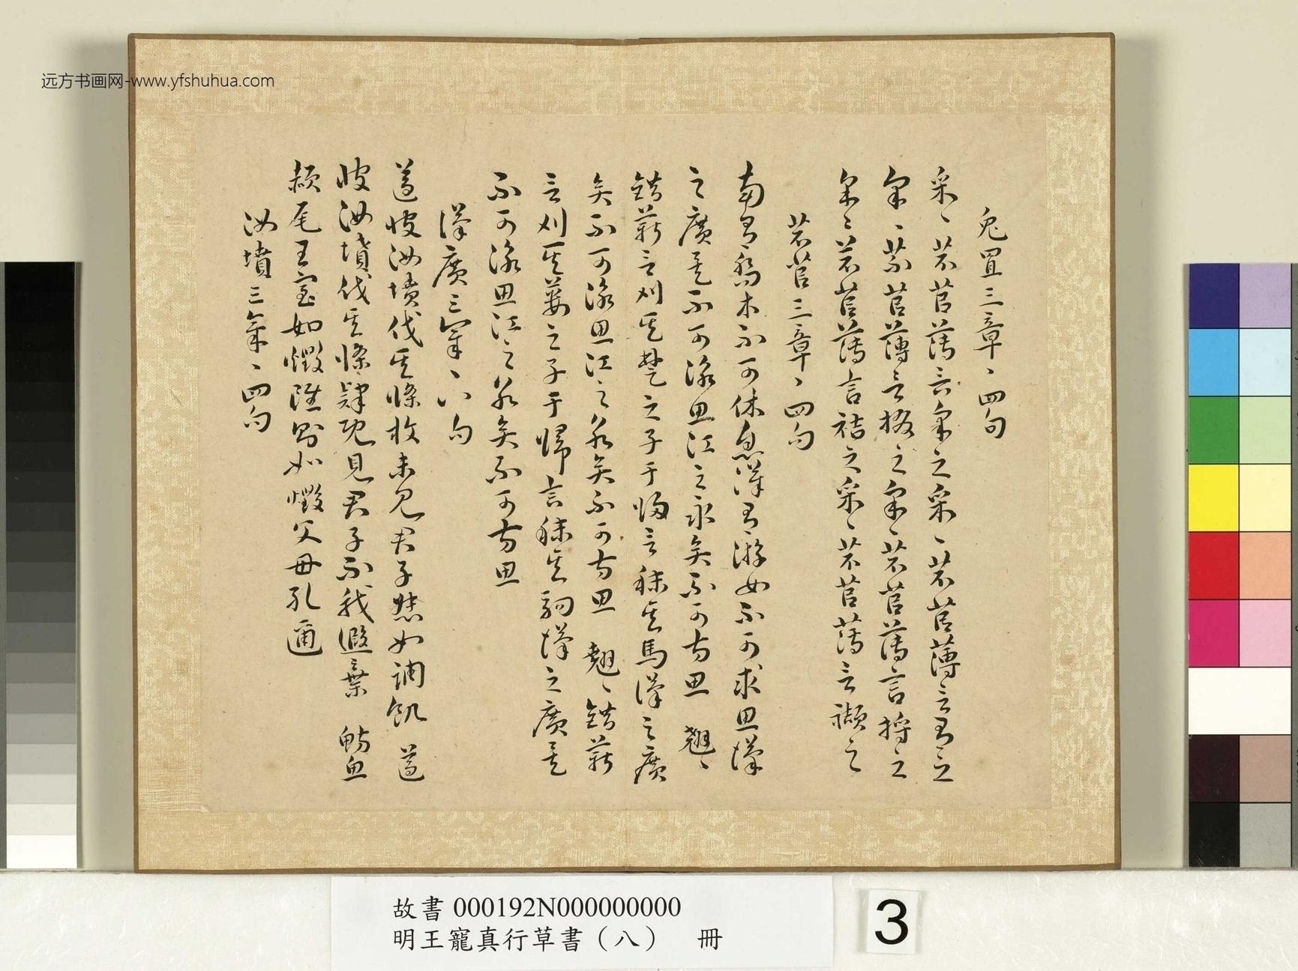 远方书画网-www.yfshuhua.com
兔罝三章〻四句
采〻芣苢薄言采之采〻芣苢薄言有之
采〻芣苢薄言掇之采〻芣苢薄言捋之
采〻芣苢薄言袺之采〻芣苢薄言襭之
芣苢三章〻四句
南有喬木不可休息漢有游女不可求思漢
之廣矣不可泳思江之永矣不可方思 翹〻
錯薪言刈其楚之子于歸言秣其馬漢之廣
矣不可泳思江之永矣不可方思 翹〻錯薪
言刈其蔞之子于歸言秣其駒漢之廣矣
不可泳思江之永矣不可方思
漢廣三章〻八句
遵彼汝墳伐其條枚未見君子惄如調飢 遵
彼汝墳伐其條肄既見君子不我遐棄 魴魚
赬尾王室如燬雖則如燬父母孔邇
汝墳三章〻四句
故書 000192N000000000
明王寵真行草書（八） 冊
3